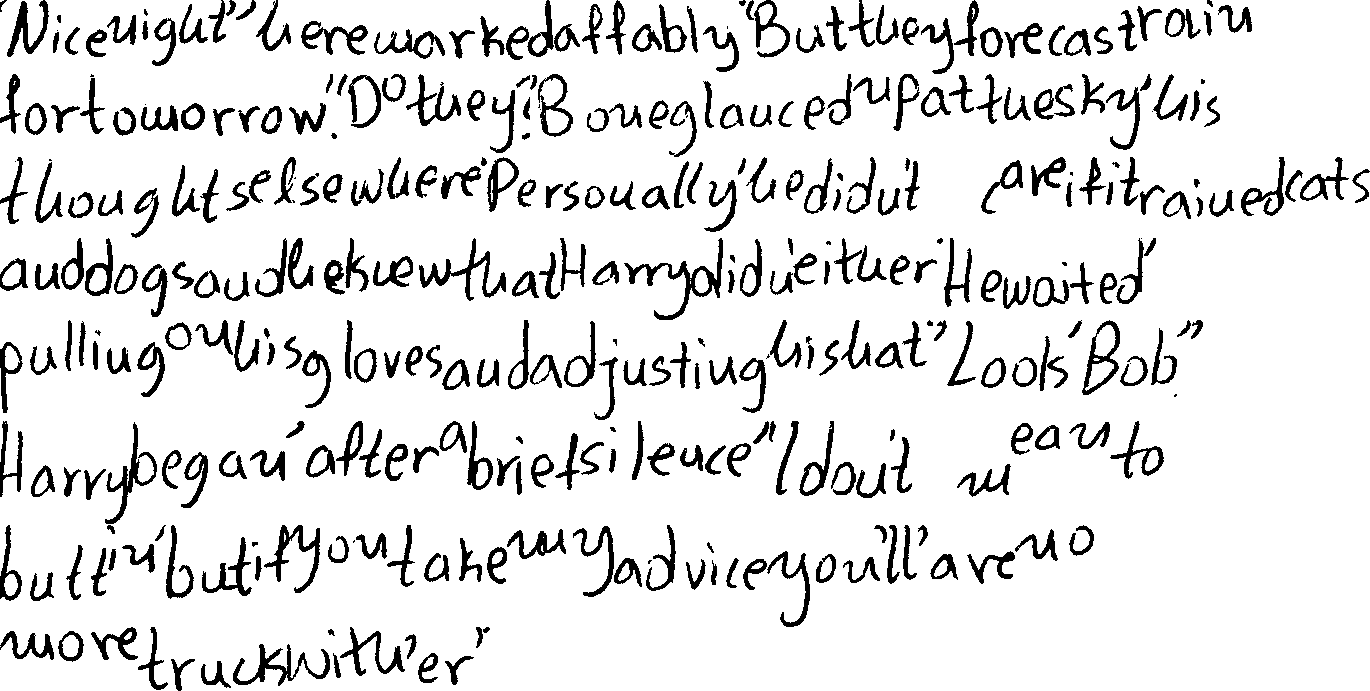 "Nice night" he remarked affably "But they forecast rain
for tomorrow." "Do they?" Bone glanced up at the sky, his
thoughts elsewhere. Personally, he didn't care if it rained cats
and dogs and he knew that Harry didn't either. He waited,
pulling on his gloves and adjusting his hat. "Look, Bob"
Harry began, after a brief silence, "I don't mean to
butt in, but if you take my advice you'll 'ave no
more truck with 'er."